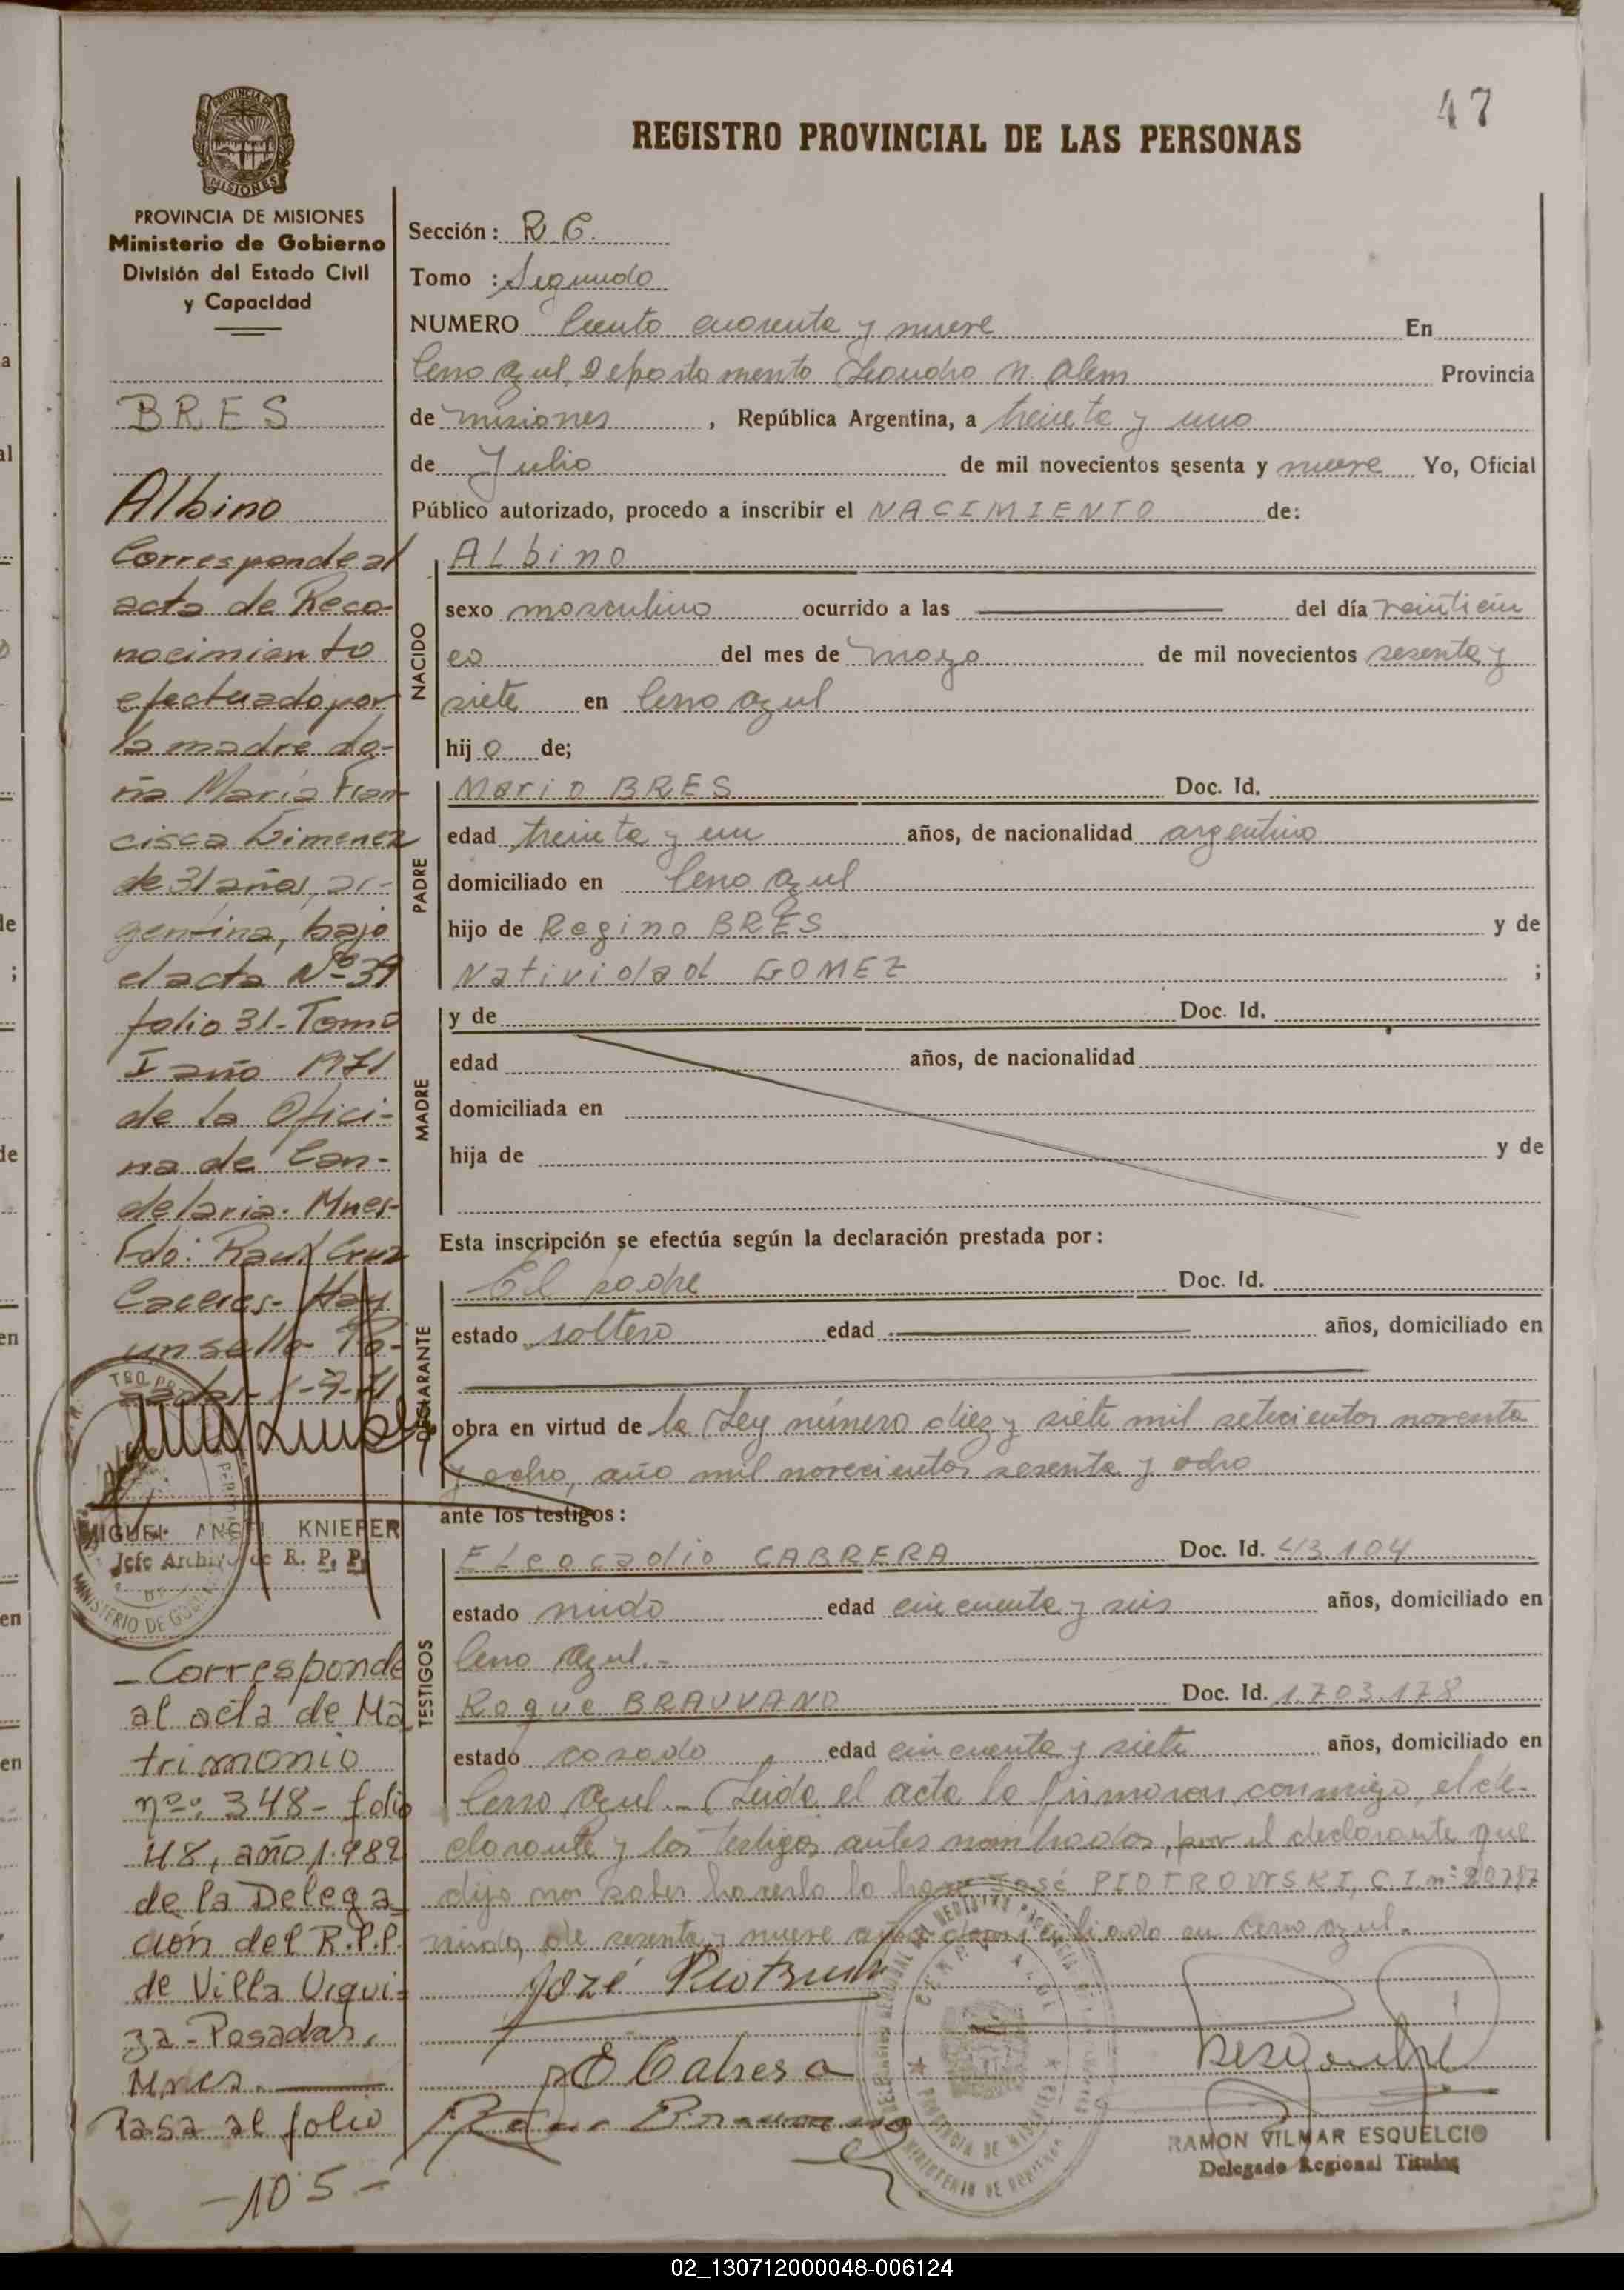 47
REGISTRO PROVINCIAL DE LAS PERSONAS
PROVINCIA DE
MISIONES
PROVINCIA DE MISIONES
Ministerio de Gobierno
División del Estado Civil
y Capacidad
BRES
Albino
Corresponde al
acta de Reco-
nocimiento
efectuado por
la madre do-
ña María Fran
cisca Gimenez
de 31 años, ar-
gentina, bajo
el acta Nº 39
folio 31-Tomo
I año 1971
de la Ofici-
na de Can-
delaria. Mnes-
Fdo: Raul Cruz
Caceres- Hay
un sello- Po-
MIGUEL ANGEL KNIEPER
Jefe Archivo de R. P. P.
MINISTERIO DE
- Corresponde
al acta de Ma
trimonio
nº: 348- folio
48, año 1.989
de la Delega
ción del R.P.P.
de Villa Urqui-
za - Posadas,
Mnes.
Pasa al folio
- 105 -
Sección: R.C.
Tomo : Segundo
NUMERO Ciento cuarenta y nueve En
Cerro Azul, Departamento Leandro N. Alem Provincia
de Misiones , República Argentina, a treinta y uno
de Julio de mil novecientos sesenta y nueve Yo, Oficial
Público autorizado, procedo a inscribir el NACIMIENTO de:
NACIDO
ALbino
sexo masculino ocurrido a las del día veinticin
co del mes de mayo de mil novecientos sesenta y
siete en Cerro Azul
hij o de;
PADRE
Mario BRES Doc. Id.
edad treinta y un años, de nacionalidad argentino
domiciliado en Cerro Azul
hijo de Regino BRES y de
Natividad GOMEZ ;
MADRE
y de Doc. Id.
edad años, de nacionalidad
domiciliada en
hija de y de
Esta inscripción se efectúa según la declaración prestada por:
DECLARANTE
El padre Doc. Id.
estado soltero edad años, domiciliado en
obra en virtud de la Ley número diez y siete mil setecientos noventa
y ocho, año mil novecientos sesenta y ocho
ante los testigos:
TESTIGOS
ELeocadio CABRERA Doc. Id. 43.104
estado viudo edad cincuenta y seis años, domiciliado en
Cerro Azul.-
Roque Doc. Id. 1.703.178
estado casado edad cincuenta y siete años, domiciliado en
Cerro Azul.- Leida el acta la firmaron conmigo, el de-
clarante y los testigos antes nombrados, por el declarante que
dijo no saber hacerlo lo hace José PIOTROWSKI, C.I. nº
viudo, de sesenta y nueve años domiciliado en cerro azul.-
José
E Cabrera
RAMON VILMAR ESQUELCIO
Delegado Regional Titular
02_130712000048-006124